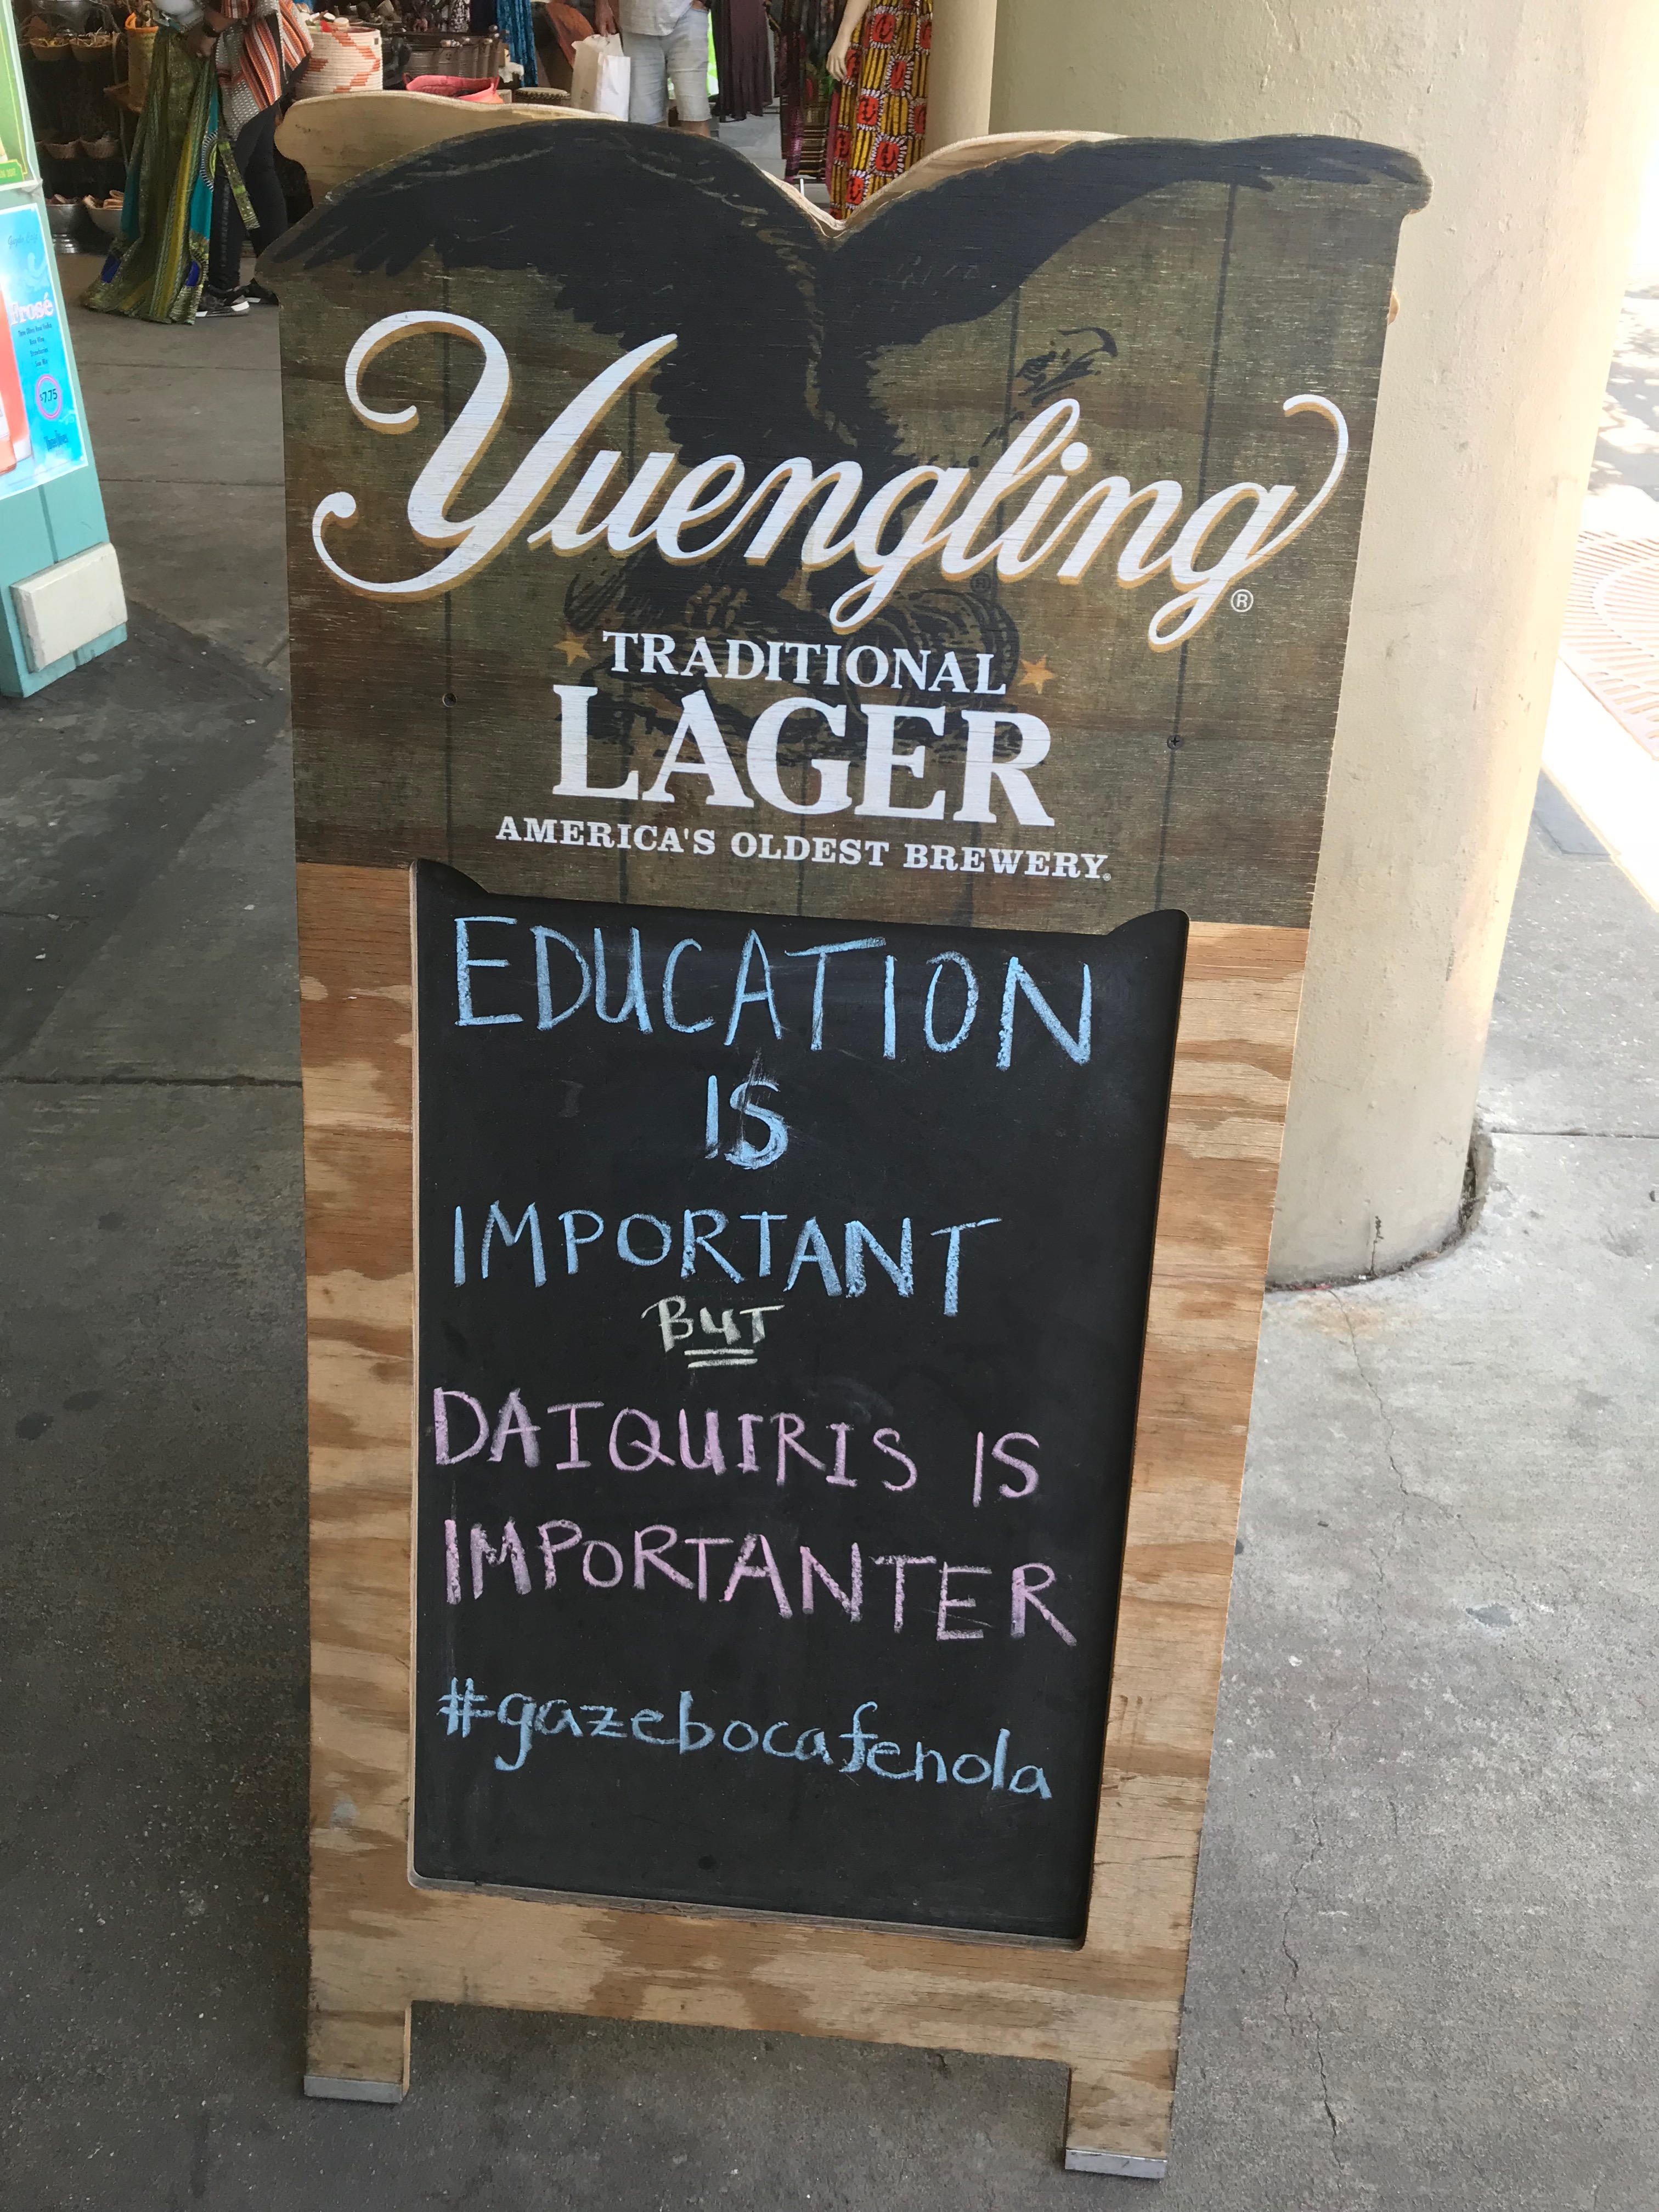 Yuengling®
TRADITIONAL
LAGER
AMERICA'S OLDEST BREWERY®
EDUCATION
IS
IMPORTANT
BUT
DAIQUIRIS IS
IMPORTANTER
#gazebocafenola
Frosé
$7.75